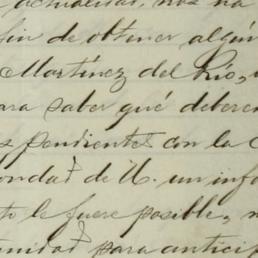 actualidad, nos ha
fin de obtener algún
Martínez del Río,
para saber qué deberem
pendientes con la C
bondad de U. un info
to le fuere posible,
para anticip